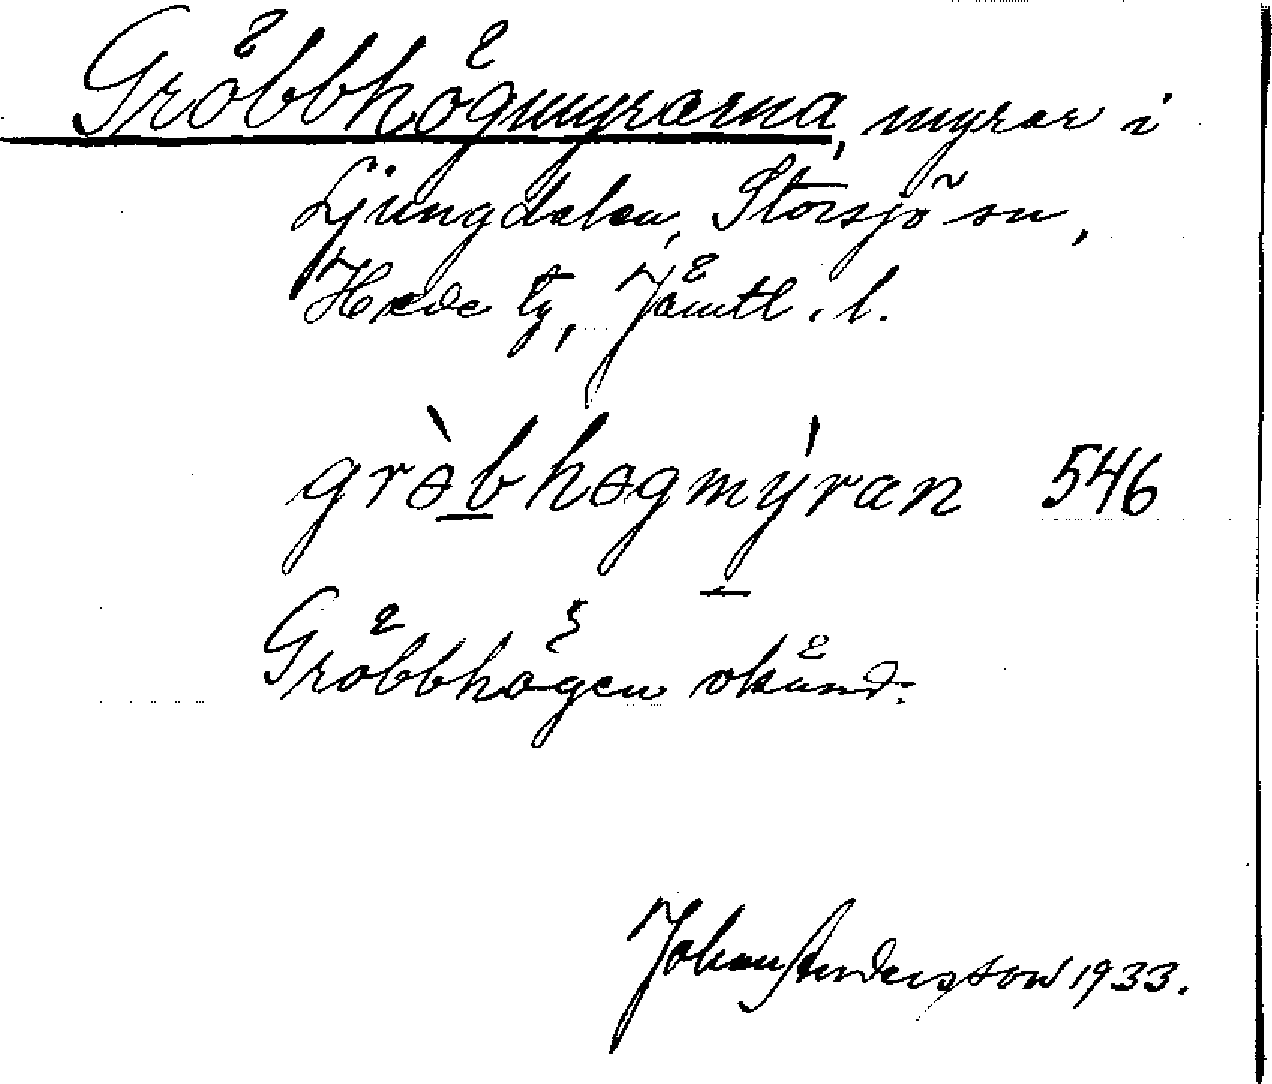 Gröbbhögmyrarna, myrar i
Ljungdalen, Storsjö sn,
Hede tg, Jämtl. l.
grèbhøgmýran 546
Gröbbhögen okänd.
Johan Andersson 1933.